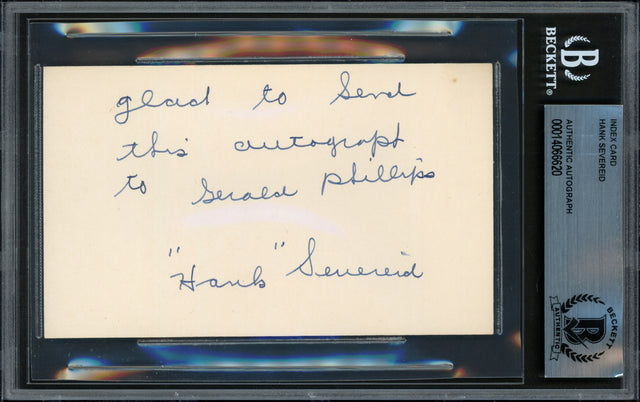 glad to Send
this autograph
to Gerald Phillips
"Hank" Severeid
B
BECKETT®
INDEX CARD
HANK SEVEREID
AUTHENTIC AUTOGRAPH
00014066620
BECKETT
B
AUTHENTIC